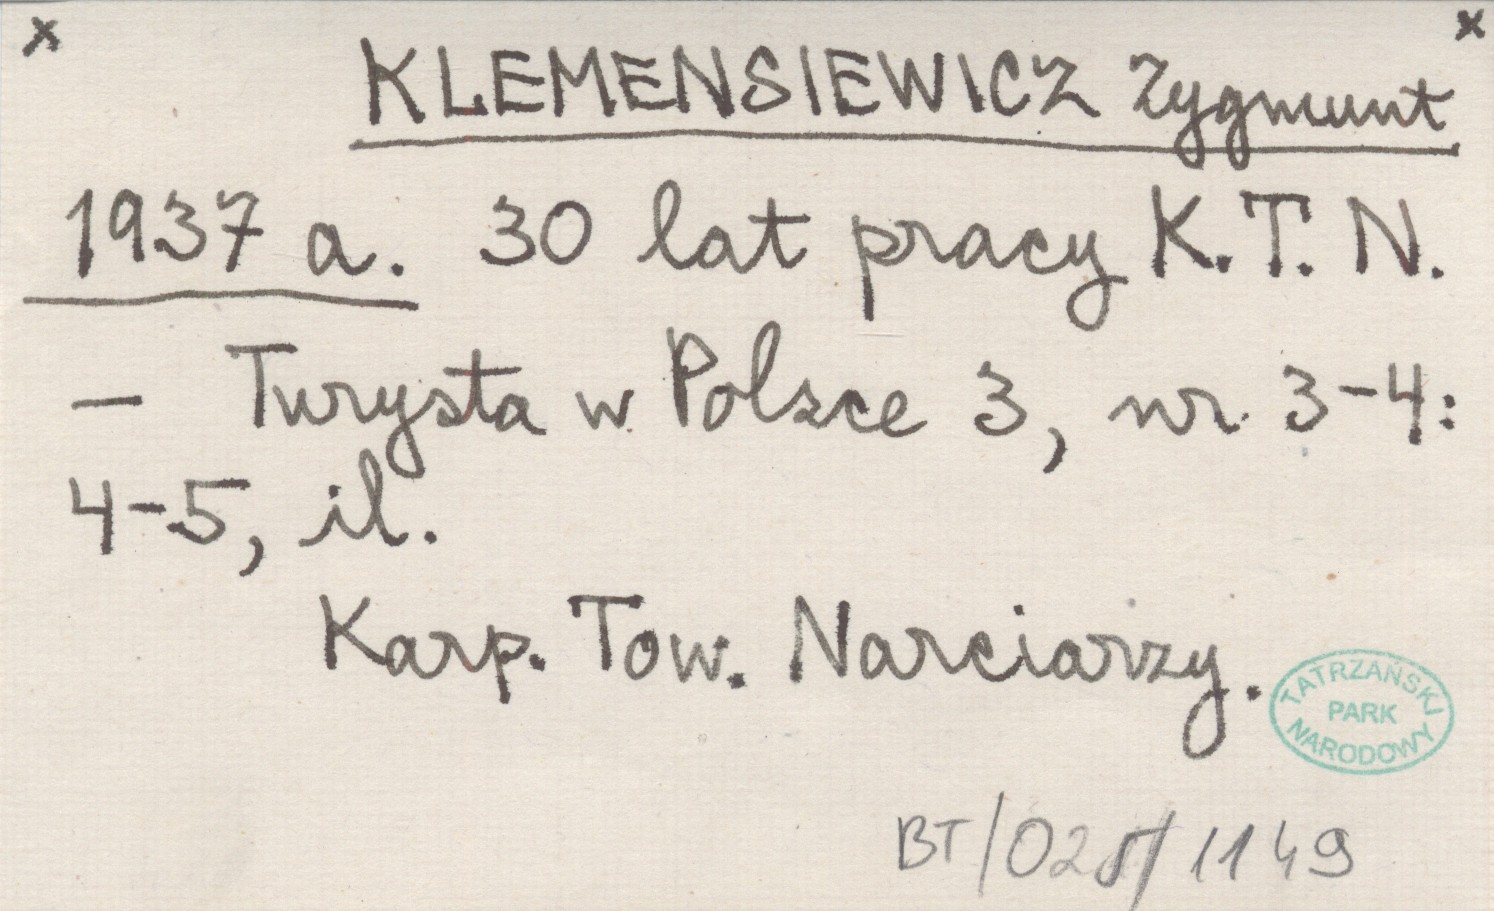 x x
KLEMENSIEWICZ Zygmunt
1937 a. 30 lat pracy K.T.N.
— Turysta w Polsce 3, nr 3-4:
4-5, il.
Karp. Tow. Narciarzy.
TATRZAŃSKI
PARK
NARODOWY
BT/028/1149